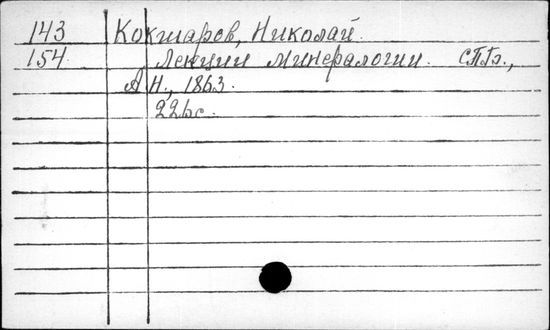 143 Кокшаров, Николай.
154 Лекции минералогии. СПб.,
АН., 1863.
226с.